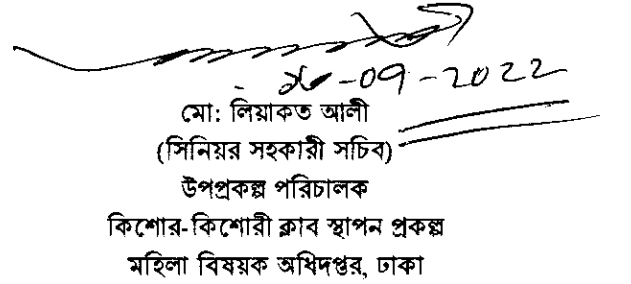 -09-2022
মো: লিয়াকত আলী
(সিনিয়র সহকারী সচিব)
উপপ্রকল্প পরিচালক
কিশোর-কিশোরী ক্লাব স্থাপন প্রকল্প
মহিলা বিষয়ক অধিদপ্তর, ঢাকা